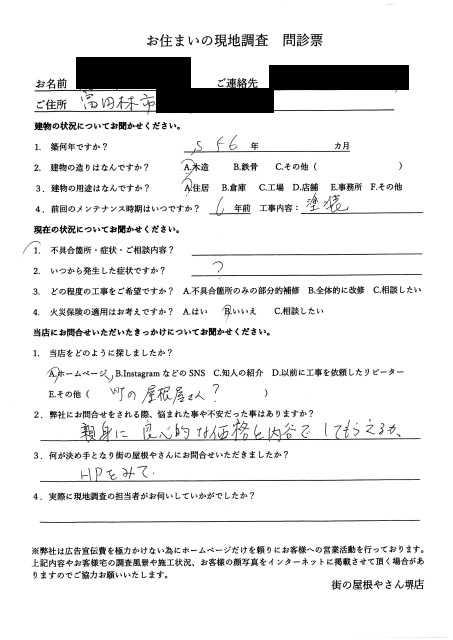 お住まいの現地調査 問診票
お名前 ご連絡先
ご住所 富田林市
建物の状況についてお聞かせください。
1. 築何年ですか? S56 年 カ月
2. 建物の造りはなんですか? A.木造 B.鉄骨 C.その他( )
3. 建物の用途はなんですか? A.住居 B.倉庫 C.工場 D.店舗 E.事務所 F.その他
4. 前回のメンテナンス時期はいつですか? 6 年前 工事内容: 塗装
現在の状況についてお聞かせください。
1. 不具合箇所・症状・ご相談内容?
2. いつから発生した症状ですか? ?
3. どの程度の工事をご希望ですか? A.不具合箇所のみの部分的補修 B.全体的に改修 C.相談したい
4. 火災保険の適用はお考えですか? A.はい B.いいえ C.相談したい
当店にお問合せいただいたきっかけについてお聞かせください。
1. 当店をどのように探しましたか?
A.ホームページ B.InstagramなどのSNS C.知人の紹介 D.以前に工事を依頼したリピーター
E.その他( 町の屋根屋さん? )
2. 弊社にお問合せをされる際、悩まれた事や不安だった事はありますか?
親身に良心的な価格と内容でしてもらえるか、
3. 何が決め手となり街の屋根やさんにお問合せいただきましたか?
HPをみて.
4. 実際に現地調査の担当者がお伺いしていかがでしたか?
※弊社は広告宣伝費を極力かけない為にホームページだけを頼りにお客様への営業活動を行っております。
上記内容やお客様宅の調査風景や施工状況、お客様の顔写真をインターネットに掲載させて頂く場合があ
りますのでご協力お願いいたします。
街の屋根やさん堺店